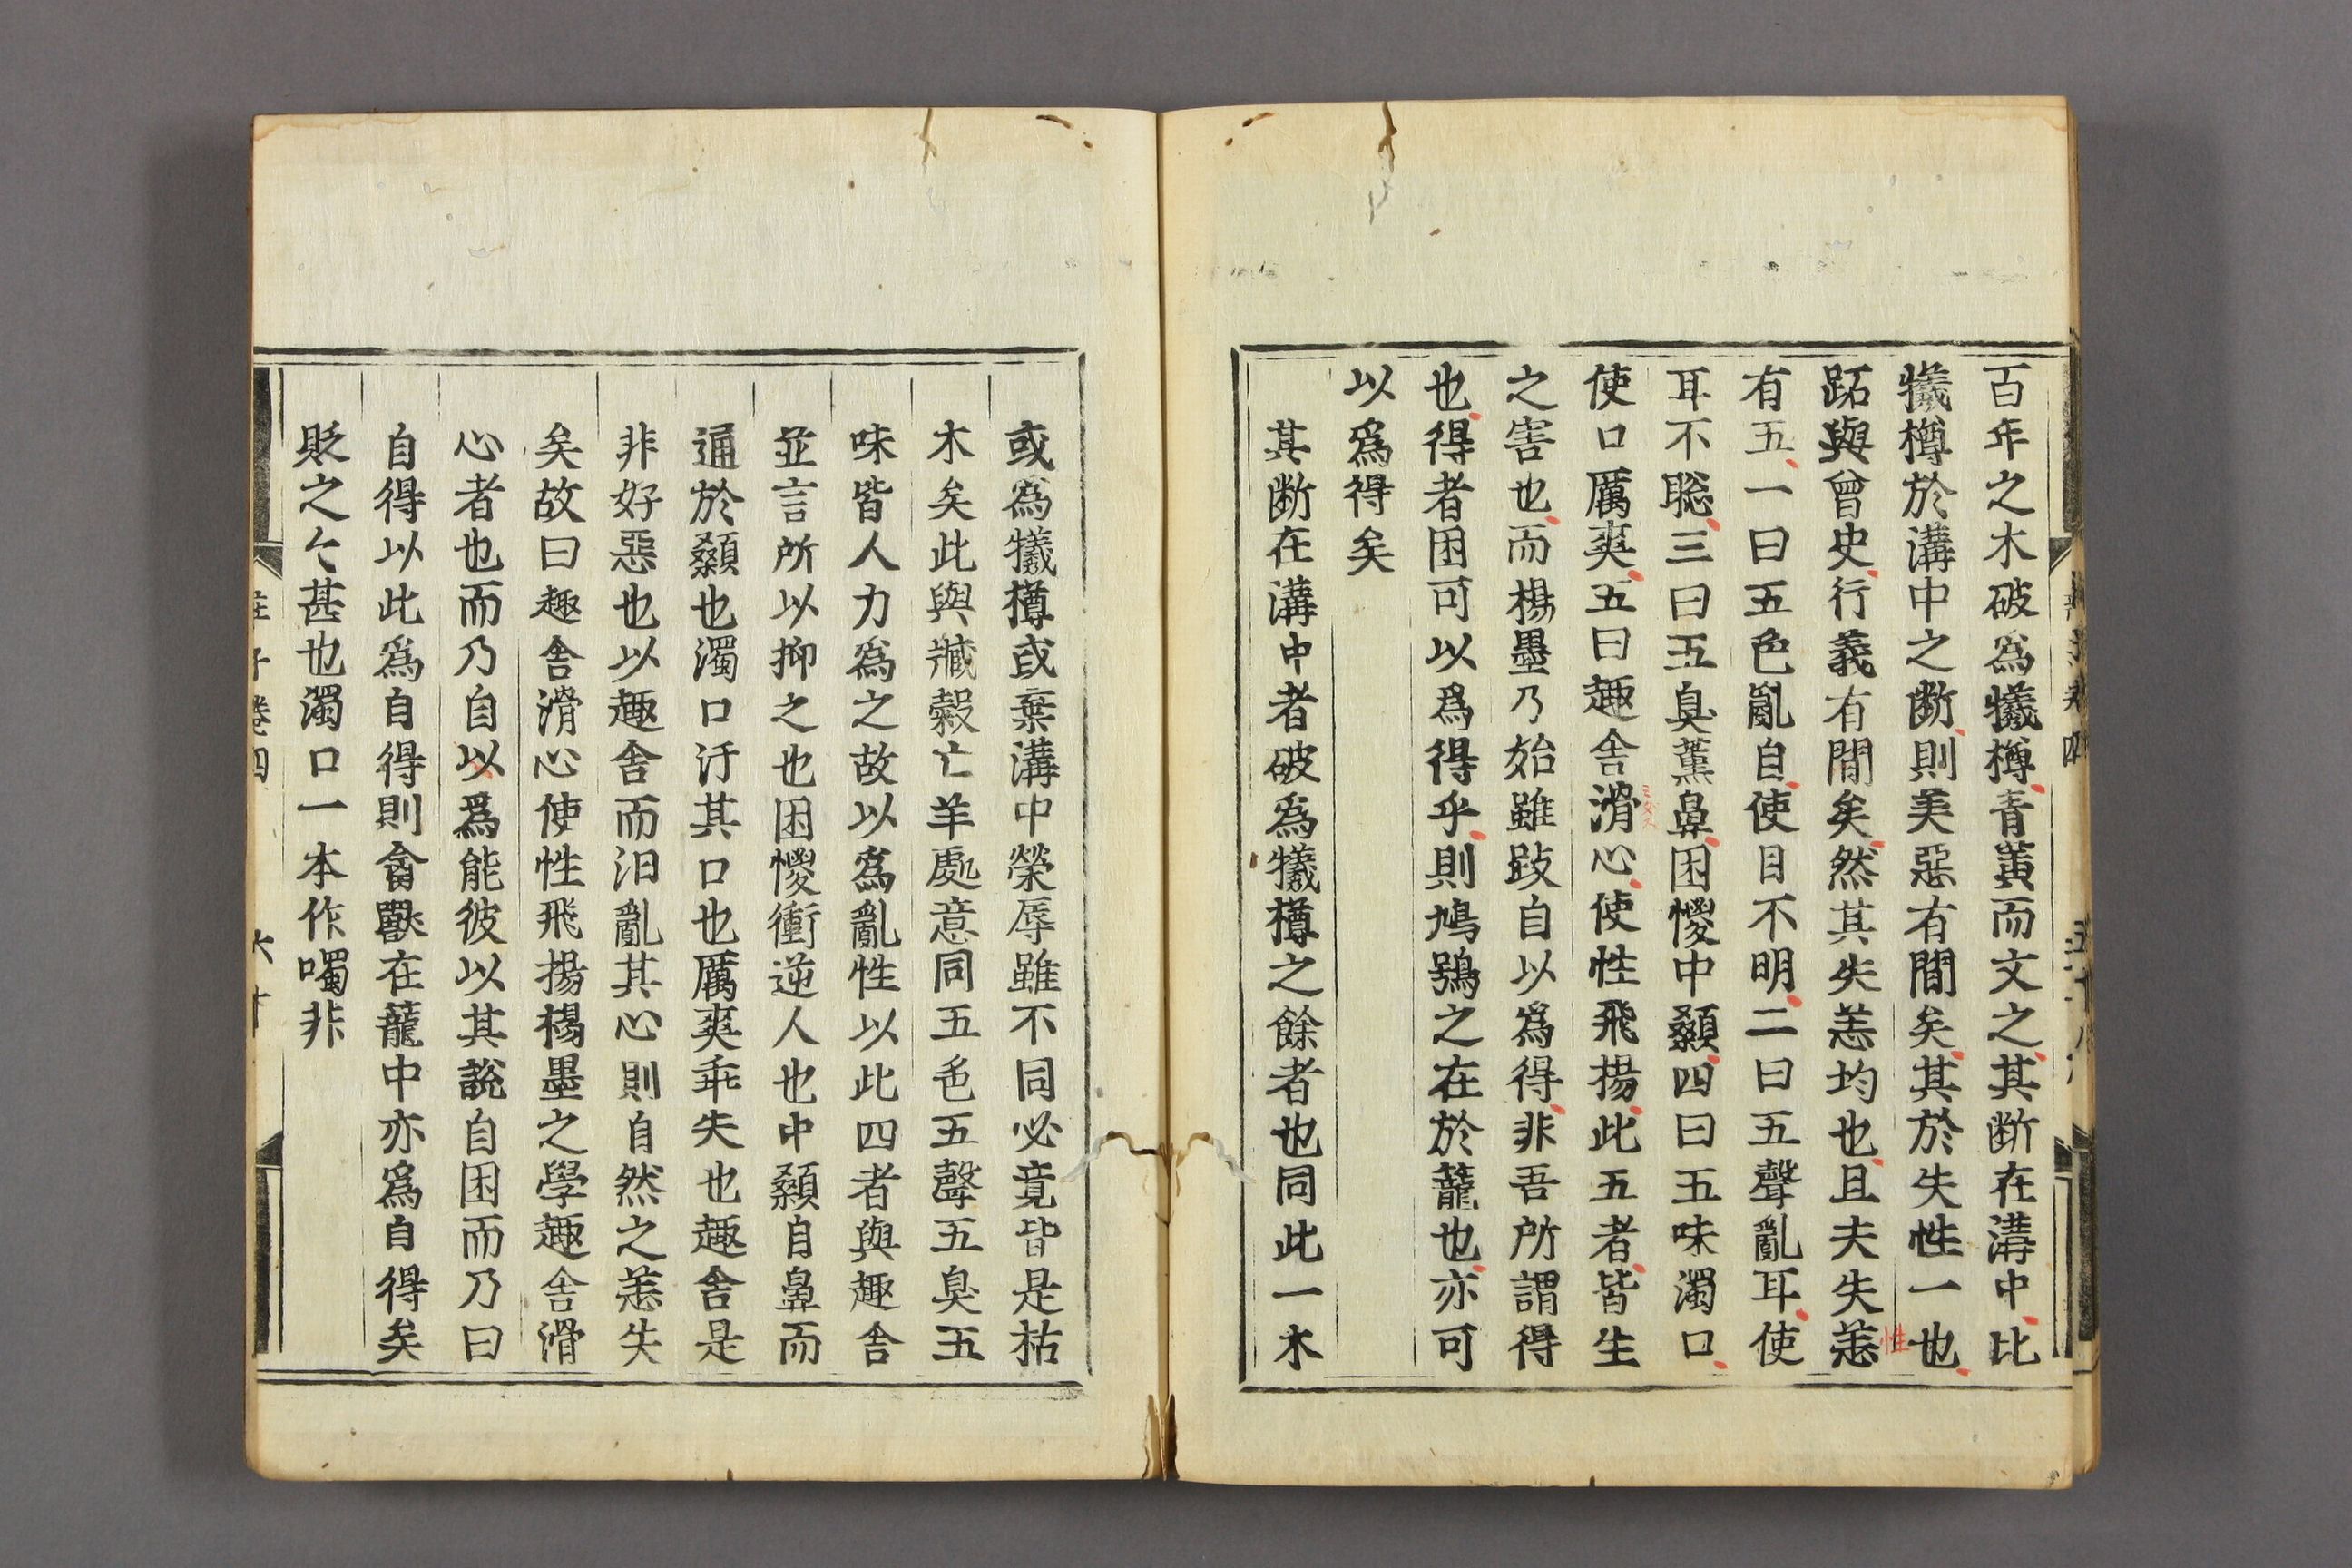 百年之木破爲犧樽青黃而文之其斷在溝中比
犧樽於溝中之断則美惡有間矣其於失性一也
跖與曾史行義有間矣然其失恙均也且夫失恙
性
有五一曰五色亂自使目不明二曰五聲亂耳使
耳不聡三曰五臭薫鼻困惾中顙四曰五味濁口
使口厲爽五曰趣舎滑心使性飛揚此五者皆生
之害也而楊墨乃始雖跂自以爲得非吾所謂得
也得者困可以爲得乎則鳩鴞之在於蘢也亦可
以爲得矣
其断在溝中者破爲犧樽之餘者也同此一木
或爲犧樽或棄溝中榮辱雖不同必竟皆是枯
木矣此與臧糓亡羊處意同五色五聲五臭五
味皆人力爲之故以爲亂性以此四者與趣舎
並言所以抑之也困惾衝逆人也中顙自鼻而
通於顙也濁口汙其口也厲爽乖失也趣舎是
非好惡也以趣舎而汨亂其心則自然之恙失
矣故曰趣舎滑心使性飛揚楊墨之學趣舎滑
心者也而乃自以爲能彼以其說自困而乃曰
自得以此爲自得則禽獸在蘢中亦爲自得矣
貶之々甚也濁口一本作噣非
莊子卷四
六十